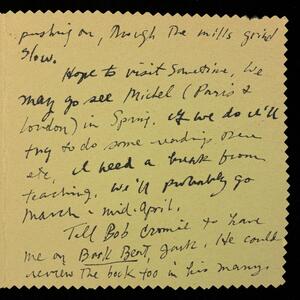 pushing on, though the mills grind
slow.
Hope to visit sometime, We
may go see Michel (Paris &
London) in Spring. If we do it'll
try to do some readings there
etc. I need a break from
teaching. We'll probably go
March - mid-April.
Tell Bob Cromie to have
me on Book Beat, Jack. He could
review the book too in his many.